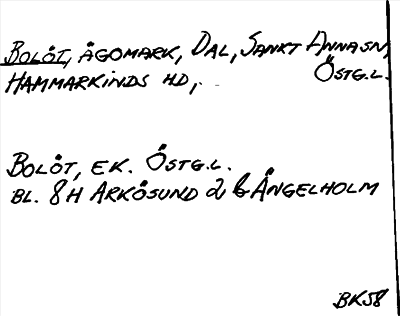 BOLÖT, ÄGOMARK, DAL, SANKT ANNA SN,
HAMMARKINDS HD, ÖSTG.L.
BOLÖT, EK. ÖSTG.L.
BL. 8H ARKÖSUND 2 b ÄNGELHOLM
BK58